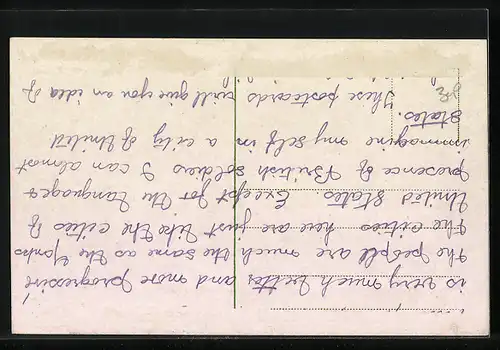 is very much better and more progressive
The people are much the same as the Yanks
The cities here are just like the cities of
United States Except for the Languages
presence of British soldiers I can almost
immagine my self in a city of United
States.
These postcards will give you an idea of